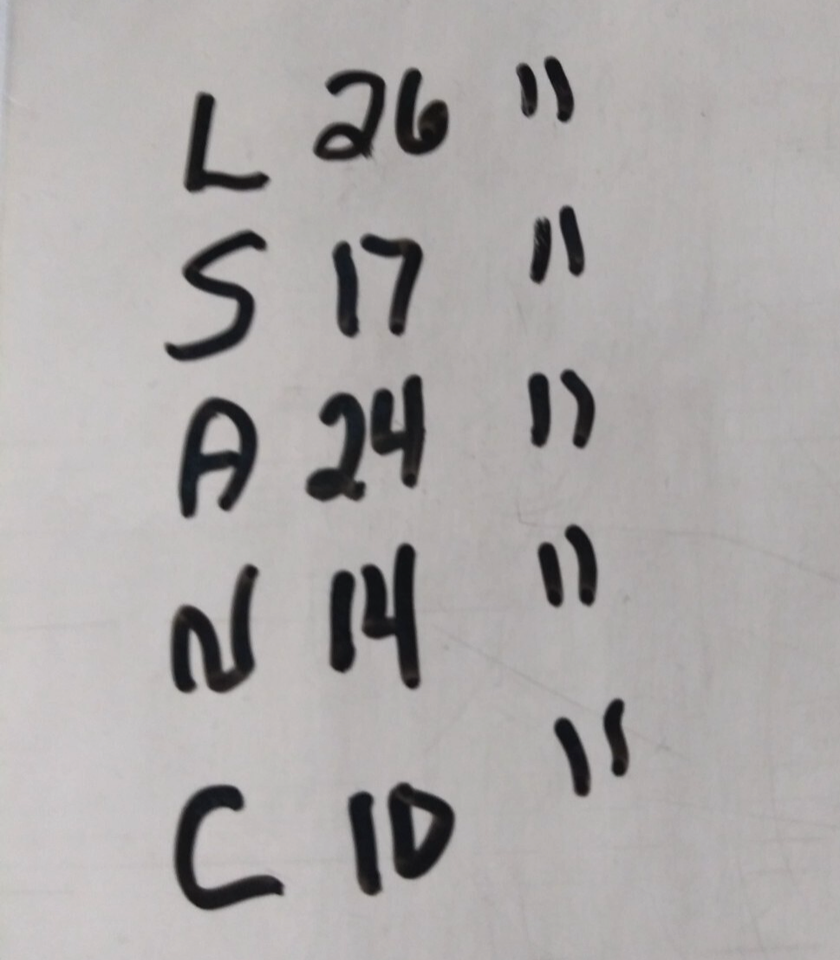 L 26 "
S 17 "
A 24 "
N 14 "
C 10 "